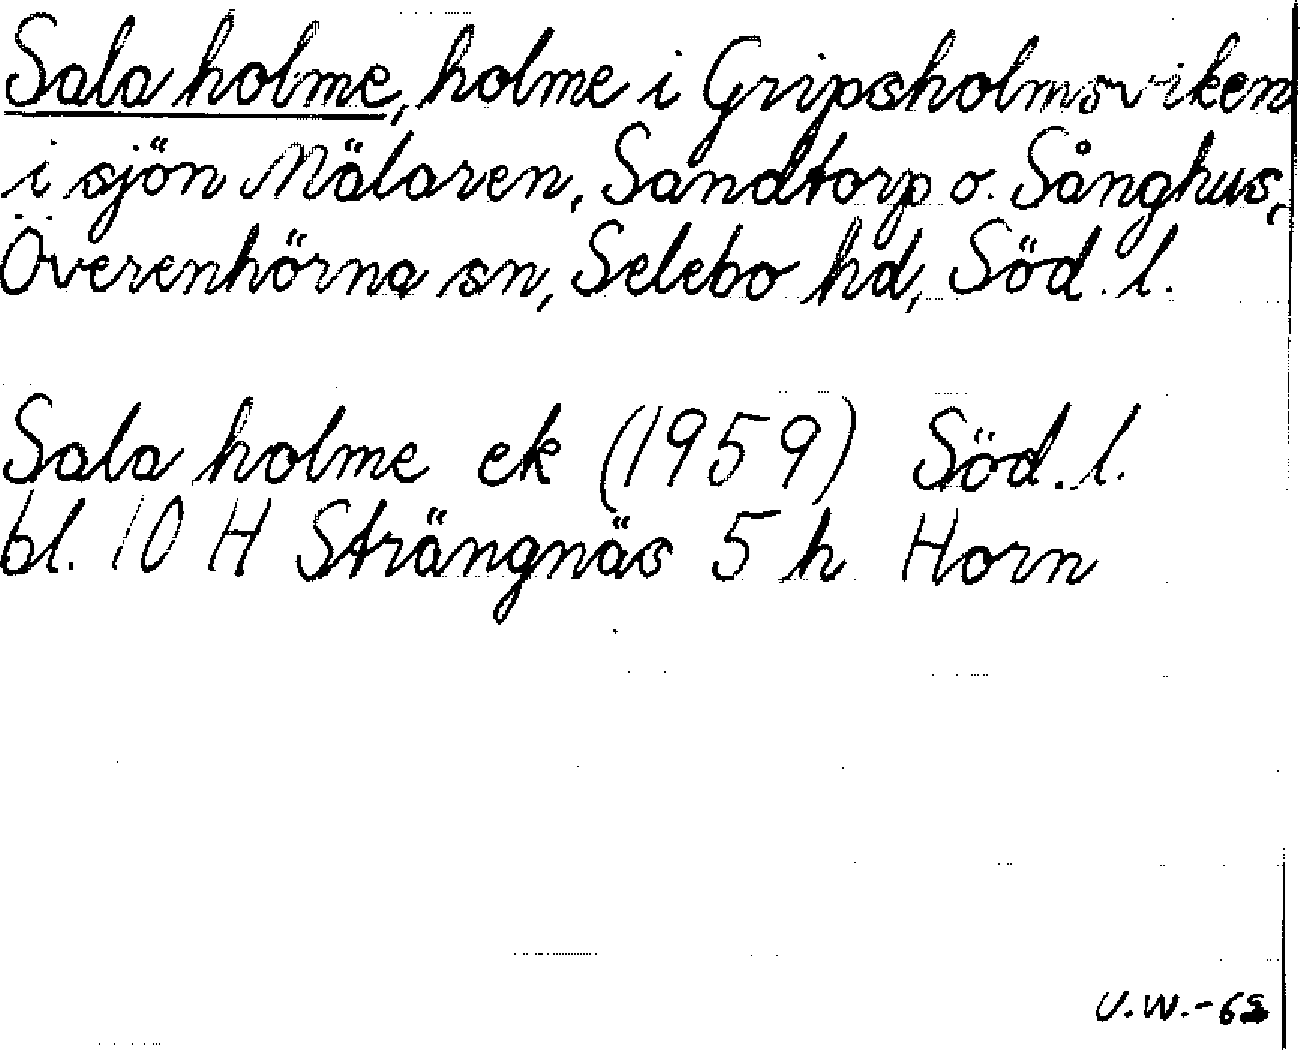 Sala holme, holme i Gripsholmsviken
i sjön Mälaren, Sandtorp o. Sånghus,
Överenhörna sn, Selebo hd, Söd. l.
Sala holme ek (1959) Söd. l.
bl. 10 H Strängnäs 5 h Horn
U.W.-